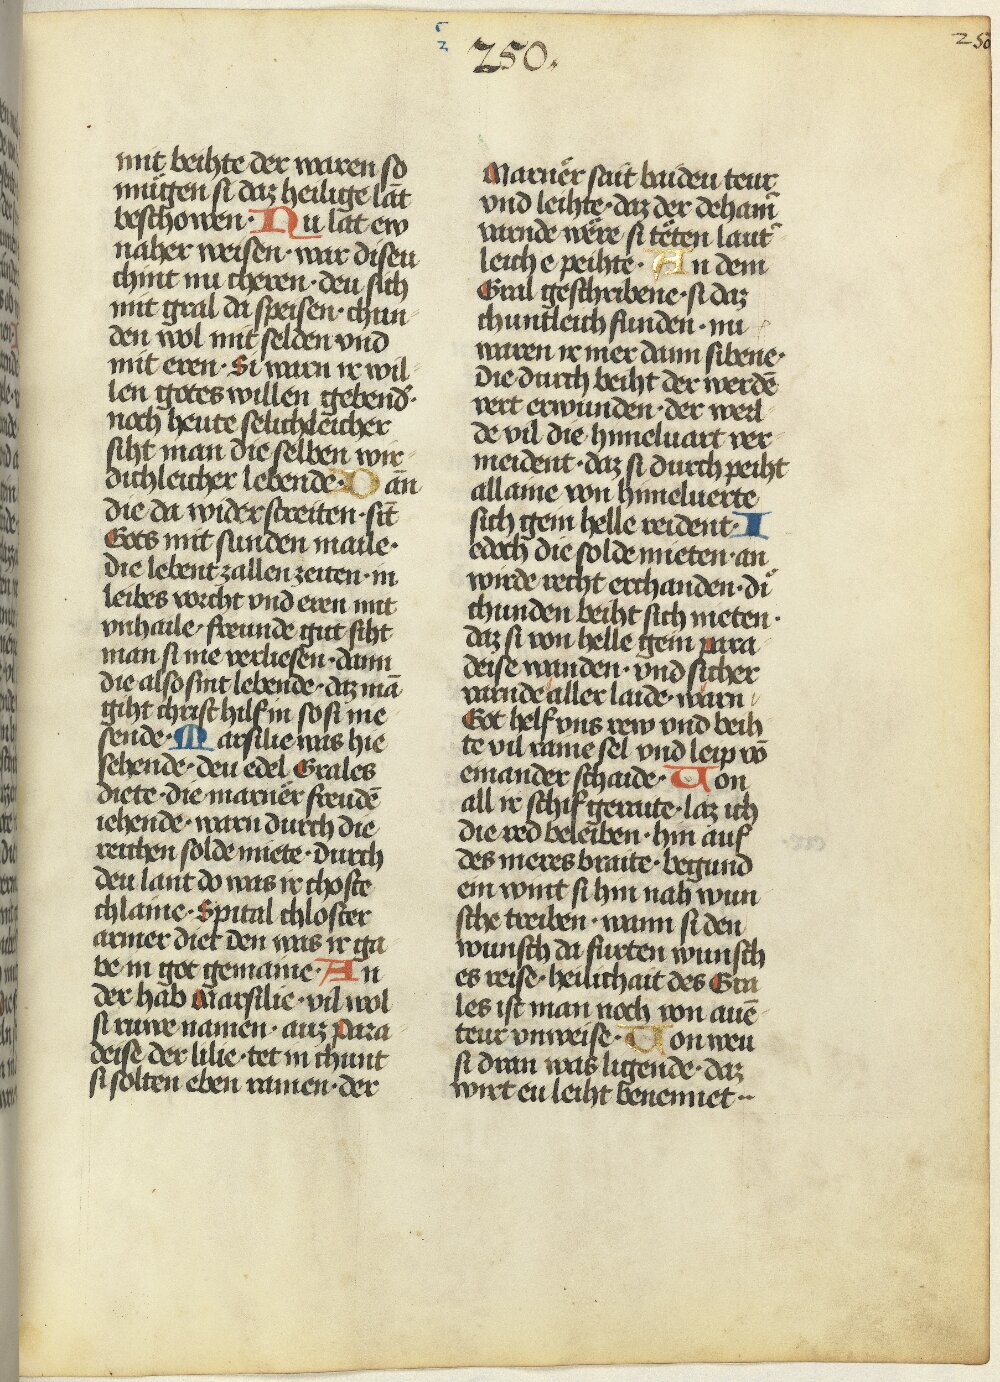 250.
250
mit beihte der waren so
mügen si daz heilige lāt
beschowen· Nu lat ew
naher weisen· war diseu
chint nu cheren· deu sich
mit gral da speisen· chun
den wol mit selden vnd
mit eren· Si warn ir wil
len gotes willen gebend·
noch heute selichleicher
siht man die selben wir
dichleicher lebende· Dān
die da wider streiten· sīt
Gots mit sunden maile·
die lebent zallen zeiten· in
leibes vorcht vnd eren mit
vnhaile· freunde gut siht
man si nie verliesen· dann
die also sint lebende· daz mā
giht christ hilf in so si nie
sende· Marsilie was hie
sehende· deu edel Grales
diete· die marnër freudē
iehende· warn durch die
reichen solde miete· durch
deu lant do was ir choste
chlaine· Spital chloster
armer diet den was ir ga
be in got gemaine· An
der hab Marsilie· vil wol
si ruwe namen· auz Para
deise der lilie· tet in chunt
si solten eben ramen· der
Marnër sait baiden teur
vnd leihte· daz der dehain
varnde wëre si tëten laut
leich e peihte· An dem
Gral geschribene· si daz
chuntleich funden· nu
waren ir mer dann sibene·
Die durch beiht der werdē
vert erwunden· der werl
de vil die himeluart ver
meident· daz si durch peiht
allaine von himeluerte
sich gem helle reident· I
edoch die solde mieten· an
wirde recht erchanden· di
chunden beiht sich nieten·
daz si von helle gem para
deise wanden· vnd sicher
varnde aller laide· warn
Got helf vns rew vnd beih
te vil raine sel vnd leip vō
einander schaide· Von
all ir schif geraite· laz ich
die red beleiben· hin auf
des meres braite· begund
ein wint si hin nah wun
sche treiben· wann si den
wunsch da furten wunsch
es reise· heilichait des Gra
les ist man noch von auē
teur vnweise· Von weu
si dran was ligende· daz
wirt eu leiht benennet··